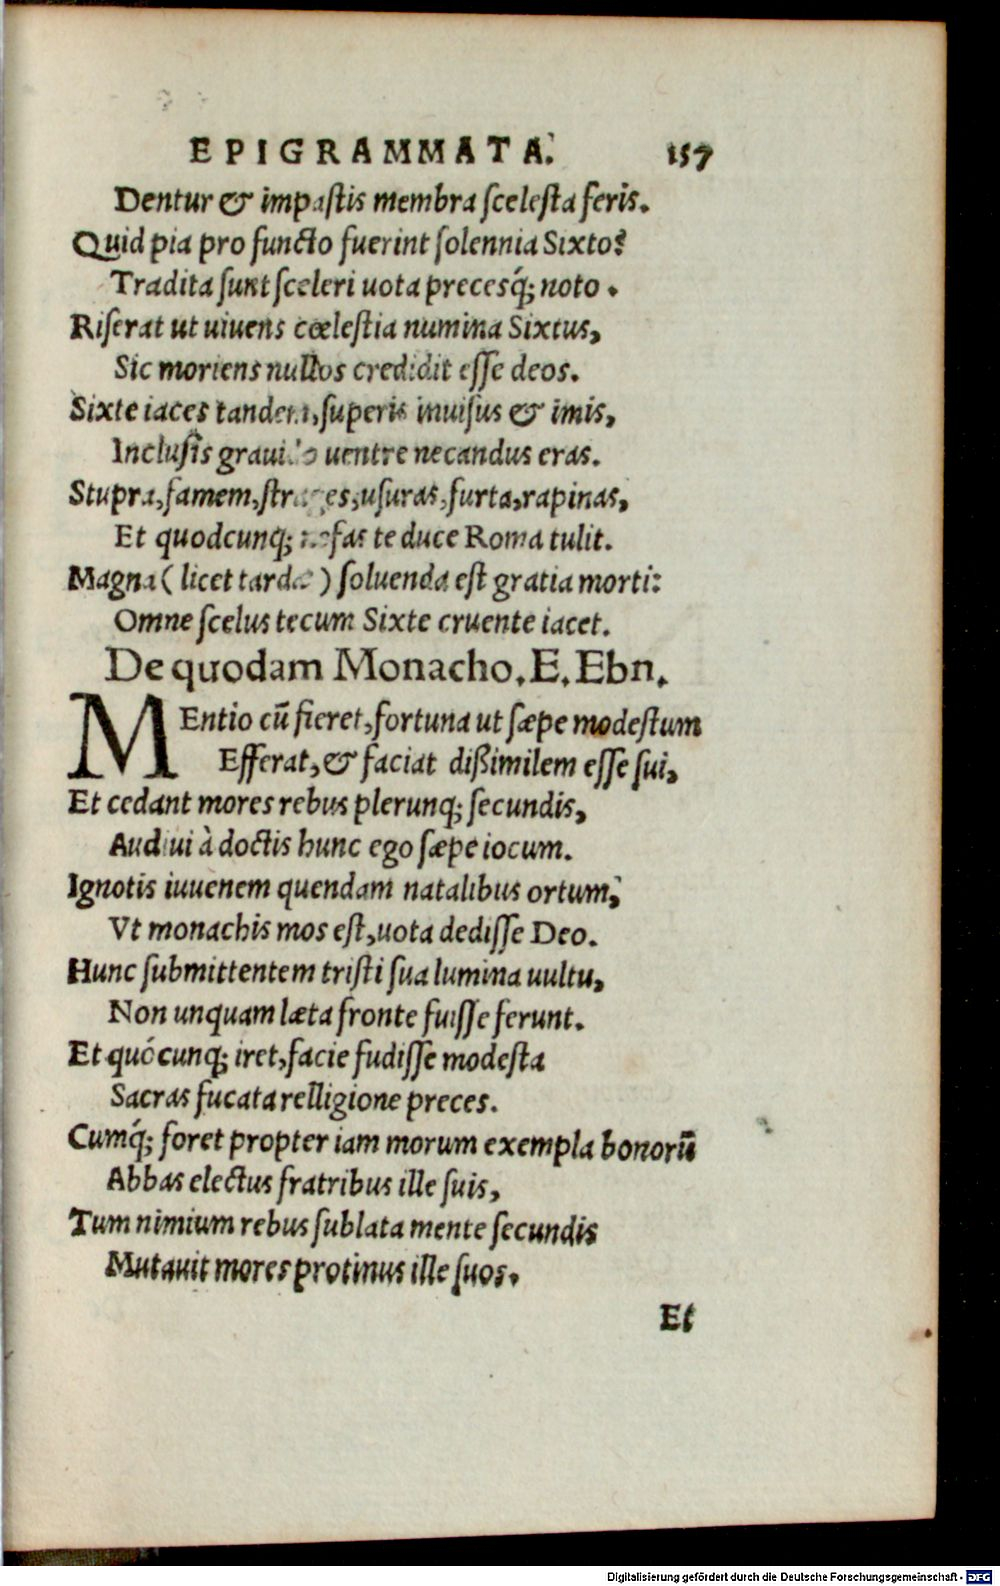 EPIGRAMMATA. 157
Dentur & impastis membra scelesta feris.
Quid pia pro functo fuerint solennia Sixto?
Tradita sunt sceleri uota precesq́; noto.
Riserat ut uiuens cœlestia numina Sixtus,
Sic moriens nullos credidit esse deos.
Sixte iaces tandem, superis inuisus & imis,
Inclusis grauido uentre necandus eras.
Stupra, famem, strages, usuras, furta, rapinas,
Et quodcunq; nefas te duce Roma tulit.
Magna (licet tardæ) soluenda est gratia morti:
Omne scelus tecum Sixte cruente iacet.
De quodam Monacho. E. Ebn.
MEntio cū fieret, fortuna ut sæpe modestum
Efferat, & faciat dißimilem esse sui,
Et cedant mores rebus plerunq; secundis,
Audiui à doctis hunc ego sæpe iocum.
Ignotis iuuenem quendam natalibus ortum,
Vt monachis mos est, uota dedisse Deo.
Hunc submittentem tristi sua lumina uultu,
Non unquam læta fronte fuisse ferunt.
Et quócunq; iret, facie fudisse modesta
Sacras fucata relligione preces.
Cumq́; foret propter iam morum exempla bonorū
Abbas electus fratribus ille suis,
Tum nimium rebus sublata mente secundis
Mutauit mores protinus ille suos.
Et
Digitalisierung gefördert durch die Deutsche Forschungsgemeinschaft - DFG